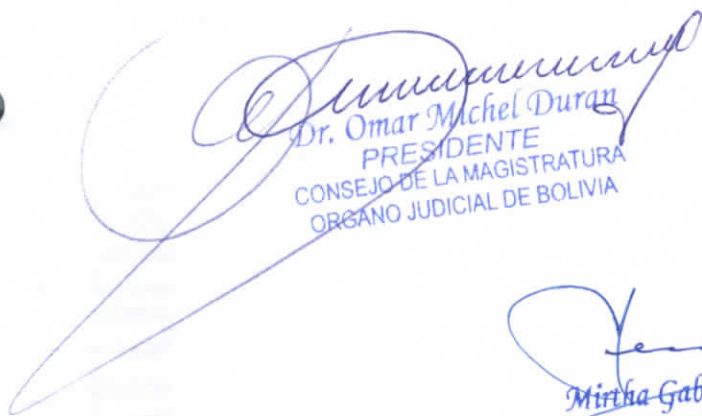 Dr. Omar Michel Duran
PRESIDENTE
CONSEJO DE LA MAGISTRATURA
ORGANO JUDICIAL DE BOLIVIA
Mirtha Gab